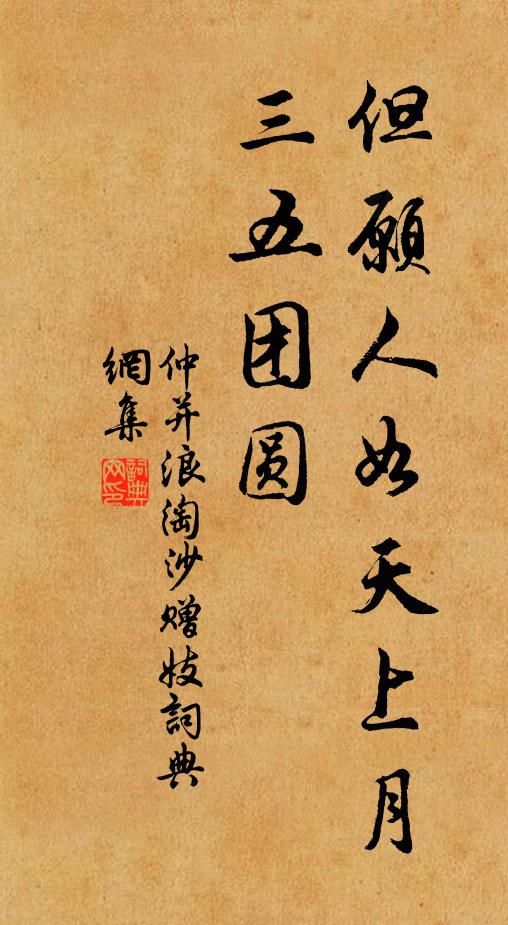 但願人如天上月
三五团圆
仲并浪淘沙赠妓詞典
網集
詞典网印